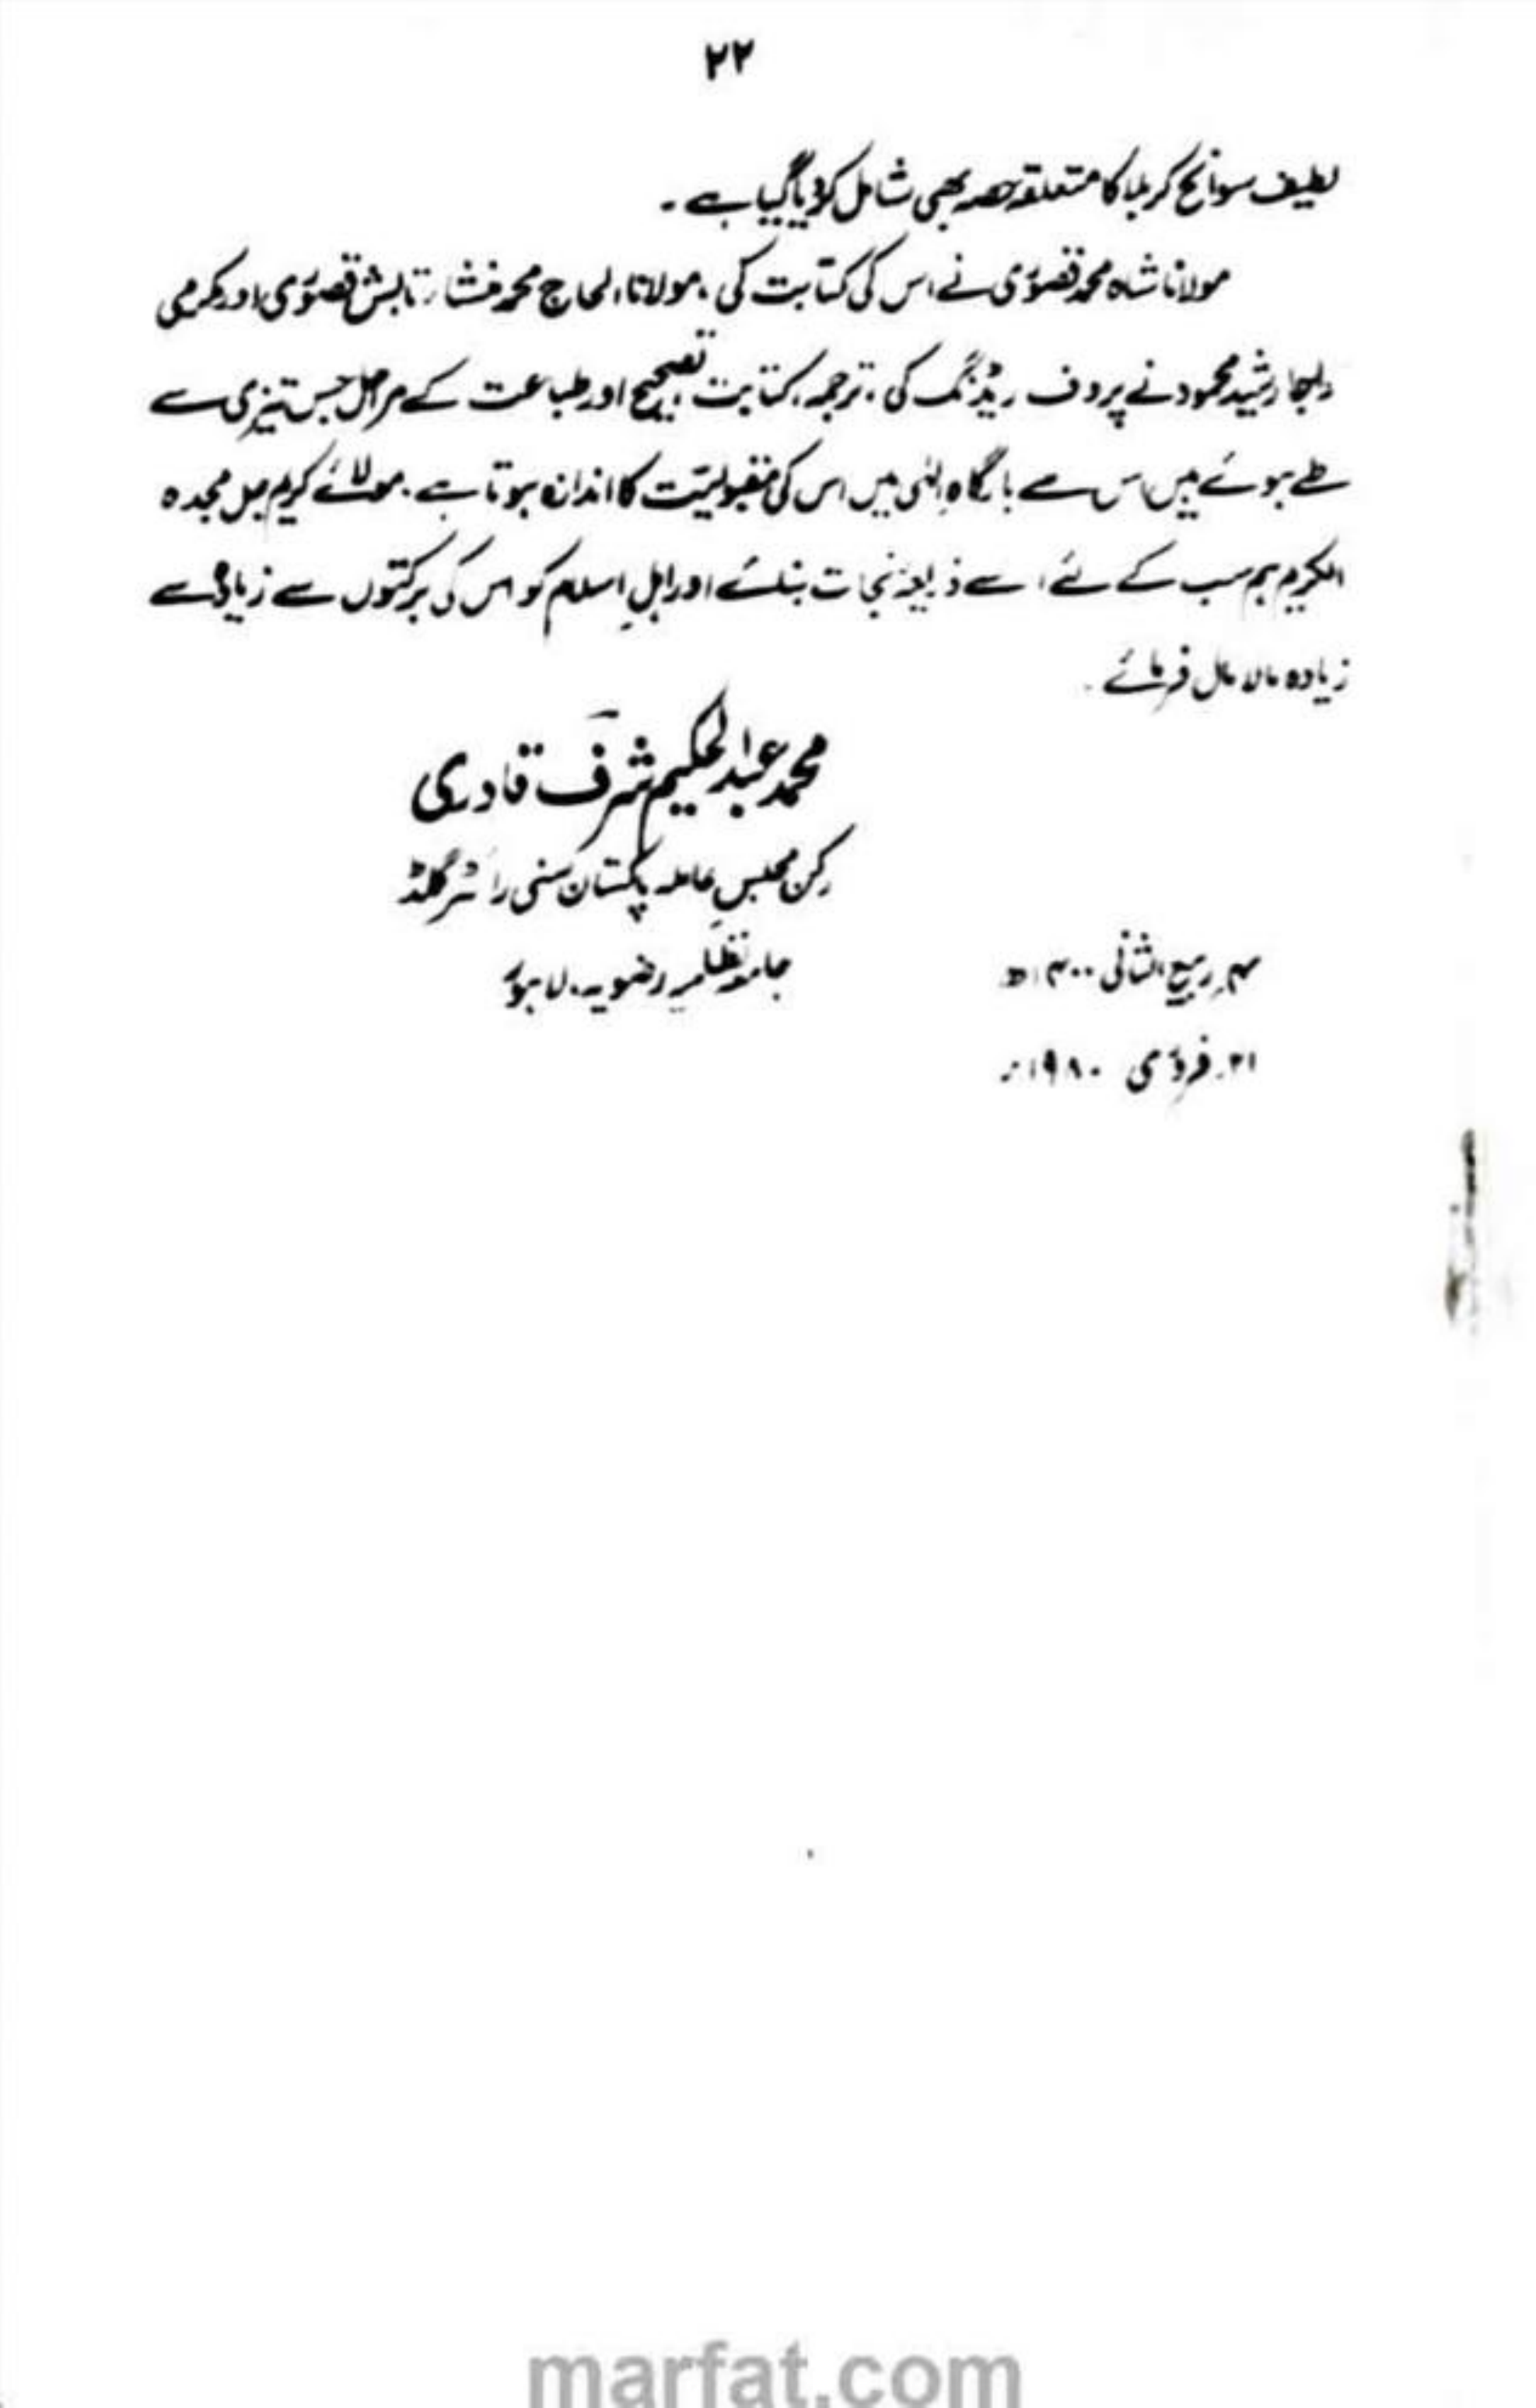 ۲۲
لطیف سوانح کربلا کا متعلقہ حصہ بھی شامل کر دیا گیا ہے ۔
مولانا شاہ محمد قصوری نے اس کی کتابت کی، مولانا الحاج محمد منشا تابش قصوری اور مکرمی
راجا رشید محمود نے پروف ریڈنگ کی، ترجمہ، کتابت، تصحیح اور طباعت کے مراحل جس تیزی سے
طے ہوئے ہیں اس سے بارگاہِ الٰہی میں اس کی مقبولیّت کا اندازہ ہوتا ہے۔ مولائے کریم جل مجدہ
الکریم ہم سب کے لئے اسے ذریعۂ نجات بنائے اور اہلِ اسلام کو اس کی برکتوں سے زیادہ سے
زیادہ مالا مال فرمائے ۔
محمد عبدالحکیم شرف قادری
رکن مجلسِ عاملہ پاکستان سنی رائٹرز گلڈ
جامعہ نظامیہ رضویہ، لاہور
۴ ربیع الثانی ۱۴۰۰ھ
۲۱ فروری ۱۹۸۰ء
marfat.com